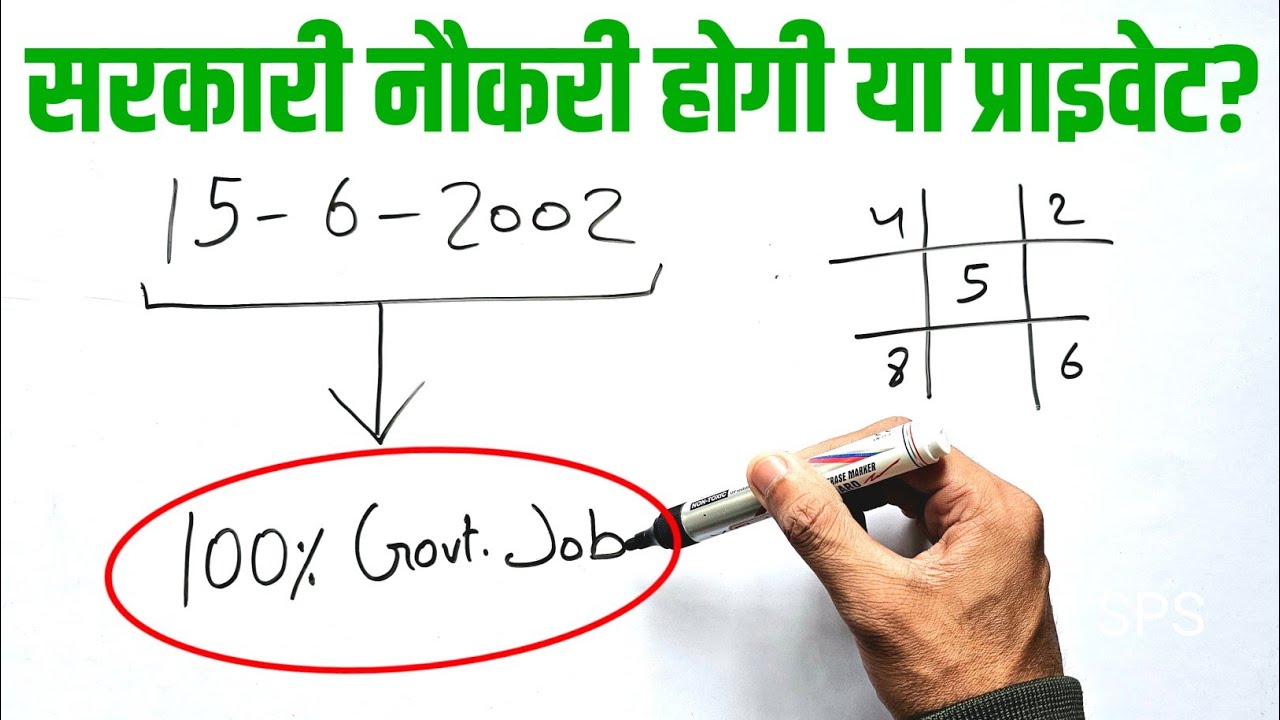 सरकारी नौकरी होगी या प्राइवेट?
15-6-2002
4 2
5
8 6
100% Govt. Job
ERASE MARKER
NON-TOXIC
SPS